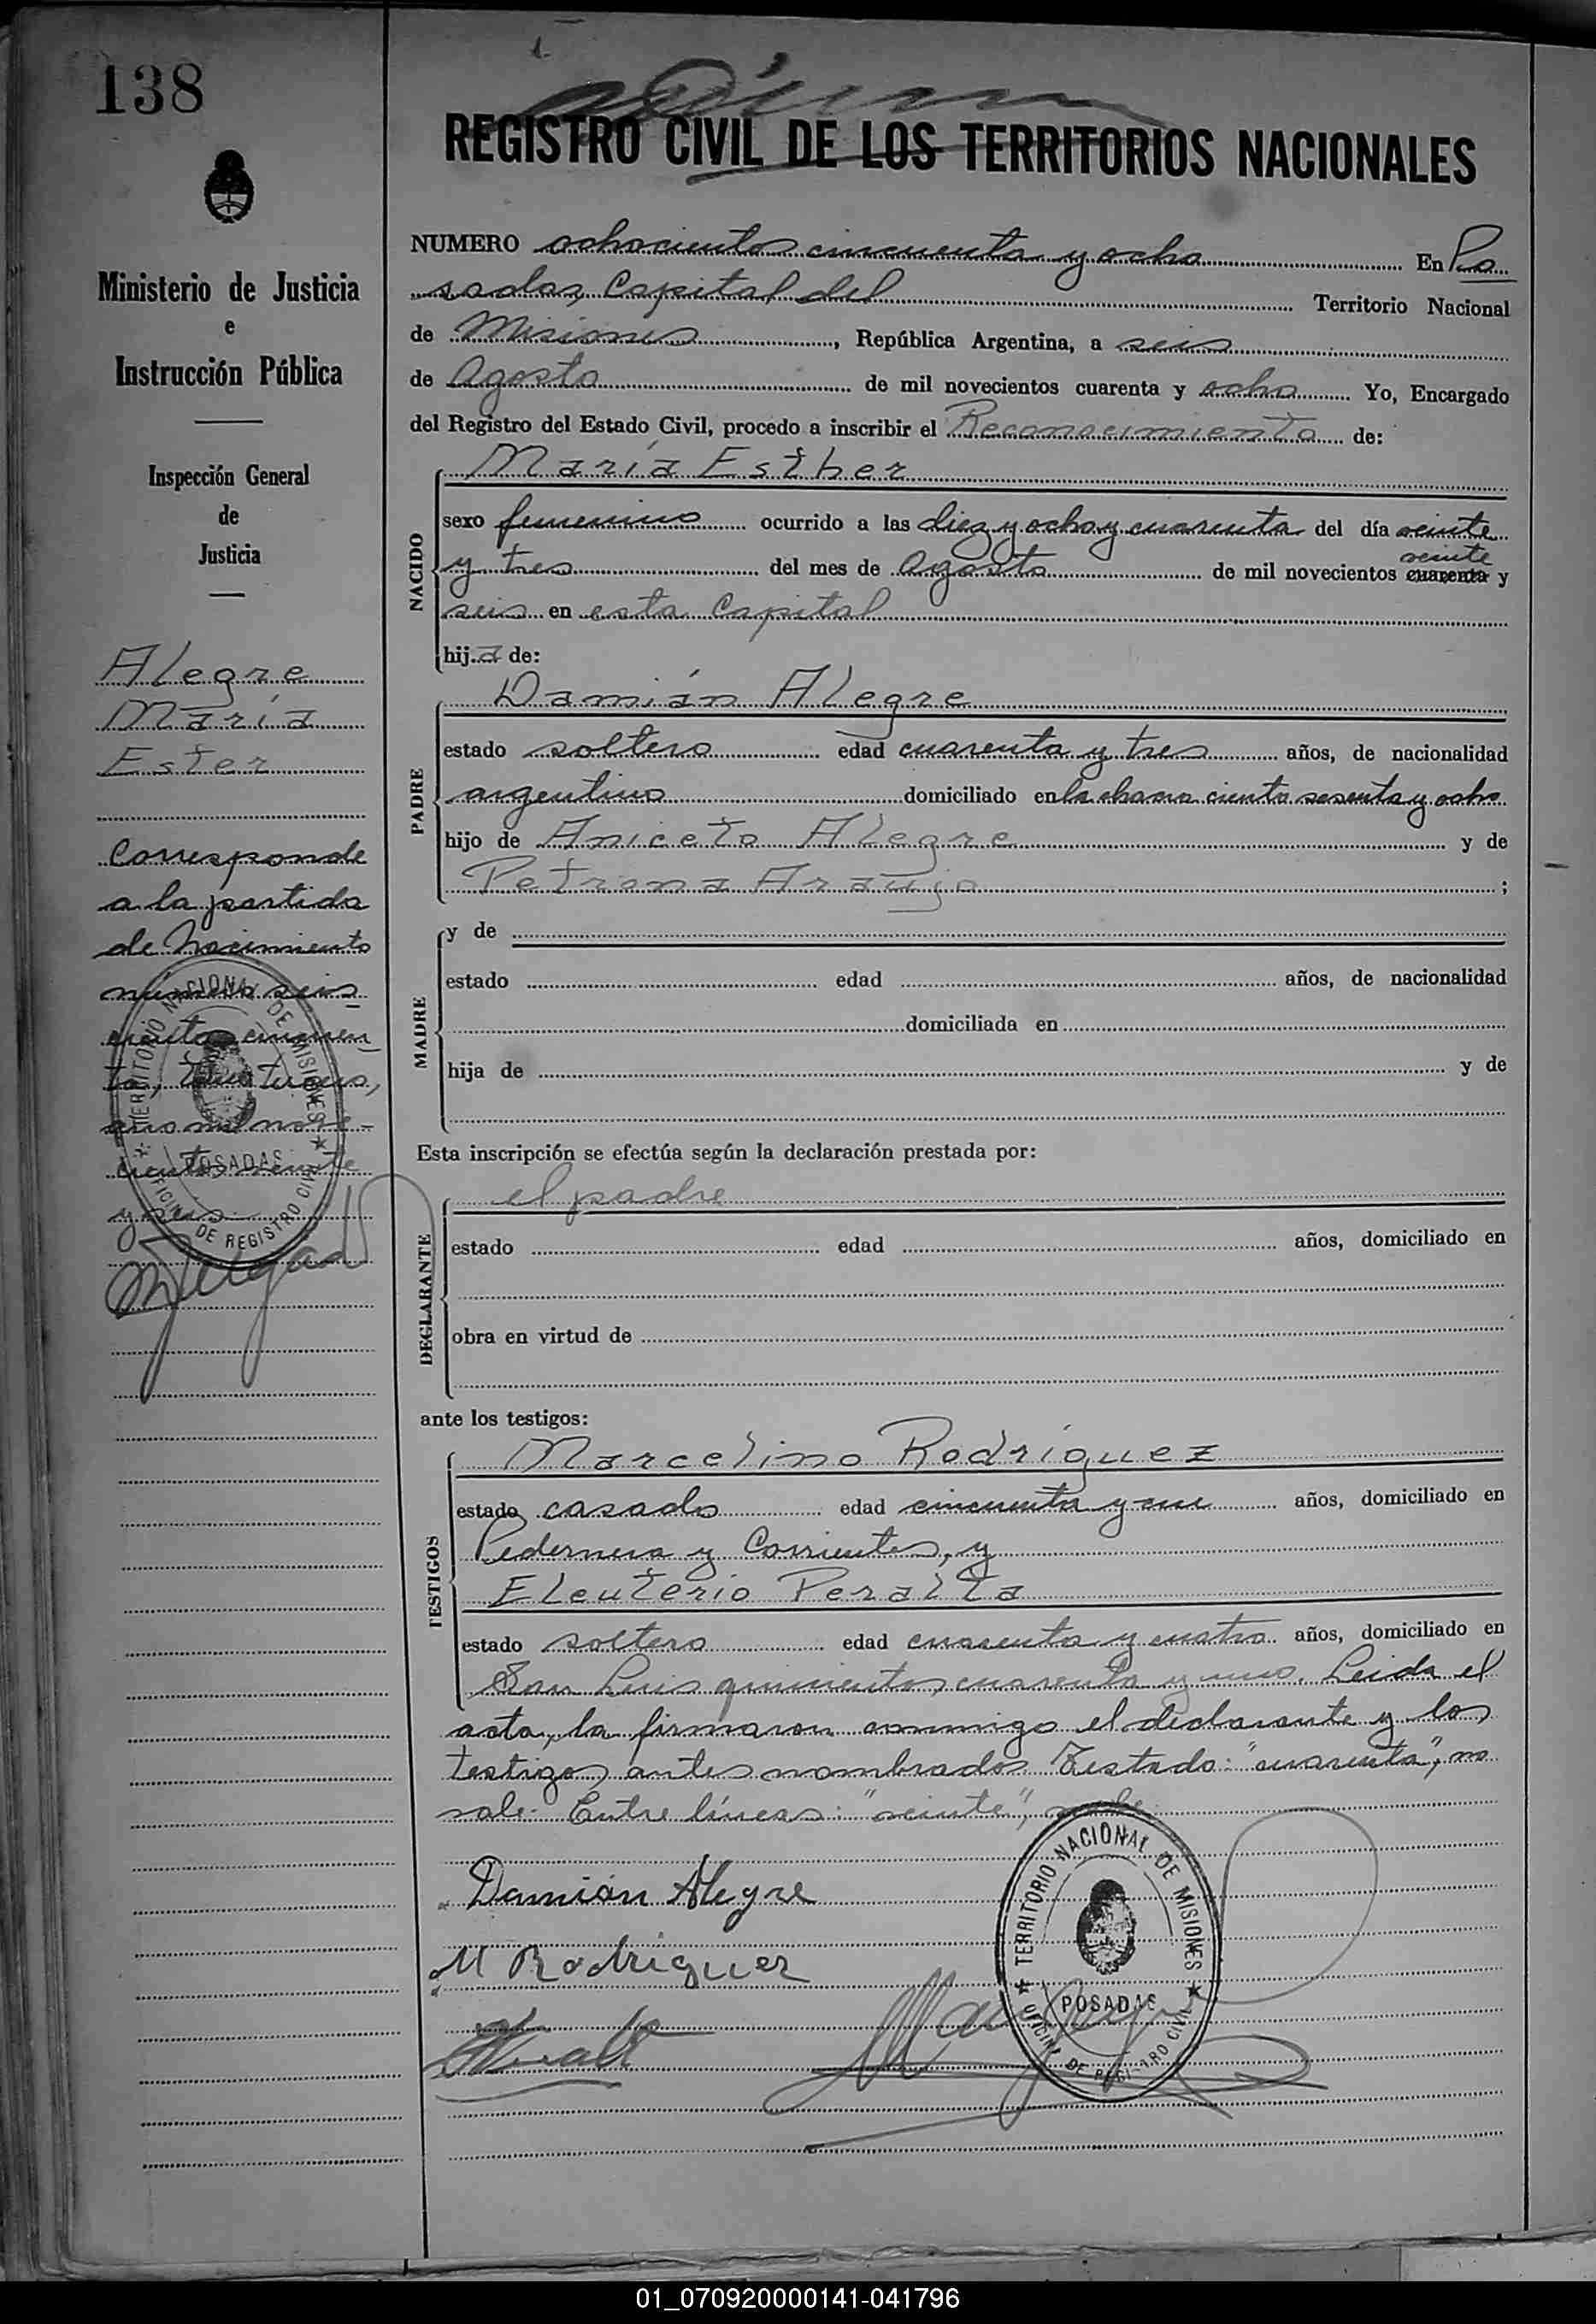 138
REGISTRO CIVIL DE LOS TERRITORIOS NACIONALES
Ministerio de Justicia
e
Instrucción Pública
Inspección General
de
Justicia
Alegre
María
Ester
Corresponde
a la partida
de Nacimiento
número seis
cientos cincuen
ta,
año mil nove-
cientos veinte
y seis
NUMERO ochocientos cincuenta y ocho En Po
sadas, Capital del Territorio Nacional
de Misiones, República Argentina, a seis
de Agosto de mil novecientos cuarenta y ocho Yo, Encargado
del Registro del Estado Civil, procedo a inscribir el Reconocimiento de:
NACIDO
María Esther
sexo femenino ocurrido a las diez y ocho y cuarenta del día veinte
y tres del mes de Agosto de mil novecientos cuarenta veinte y
seis en esta Capital
hija de:
PADRE
Damián Alegre
estado soltero edad cuarenta y tres años, de nacionalidad
argentino domiciliado en la chacra ciento sesenta y ocho
hijo de Aniceto Alegre y de
Petrona Araujo ;
MADRE
y de
estado edad años, de nacionalidad
domiciliada en
hija de y de
Esta inscripción se efectúa según la declaración prestada por:
DECLARANTE
el padre
estado edad años, domiciliado en
obra en virtud de
ante los testigos:
TESTIGOS
Marcelino Rodríguez
estado casado edad cincuenta y un años, domiciliado en
Pedernera y Corrientes, y
Eleuterio Peralta
estado soltero edad cuarenta y cuatro años, domiciliado en
San Luis quinientos cuarenta y uno. Leída el
acta, la firmaron conmigo el declarante y los
testigos antes nombrados. Testado: "cuarenta", no
vale. Entre líneas: "veinte", vale.
Damián Alegre
M Rodriguez
TERRITORIO NACIONAL DE MISIONES
POSADAS
OFICINA DE REGISTRO CIVIL
TERRITORIO NACIONAL DE MISIONES
POSADAS
OFICINA DE REGISTRO CIVIL
01_070920000141-041796